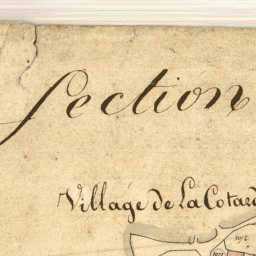 Section
Village de La Cotard